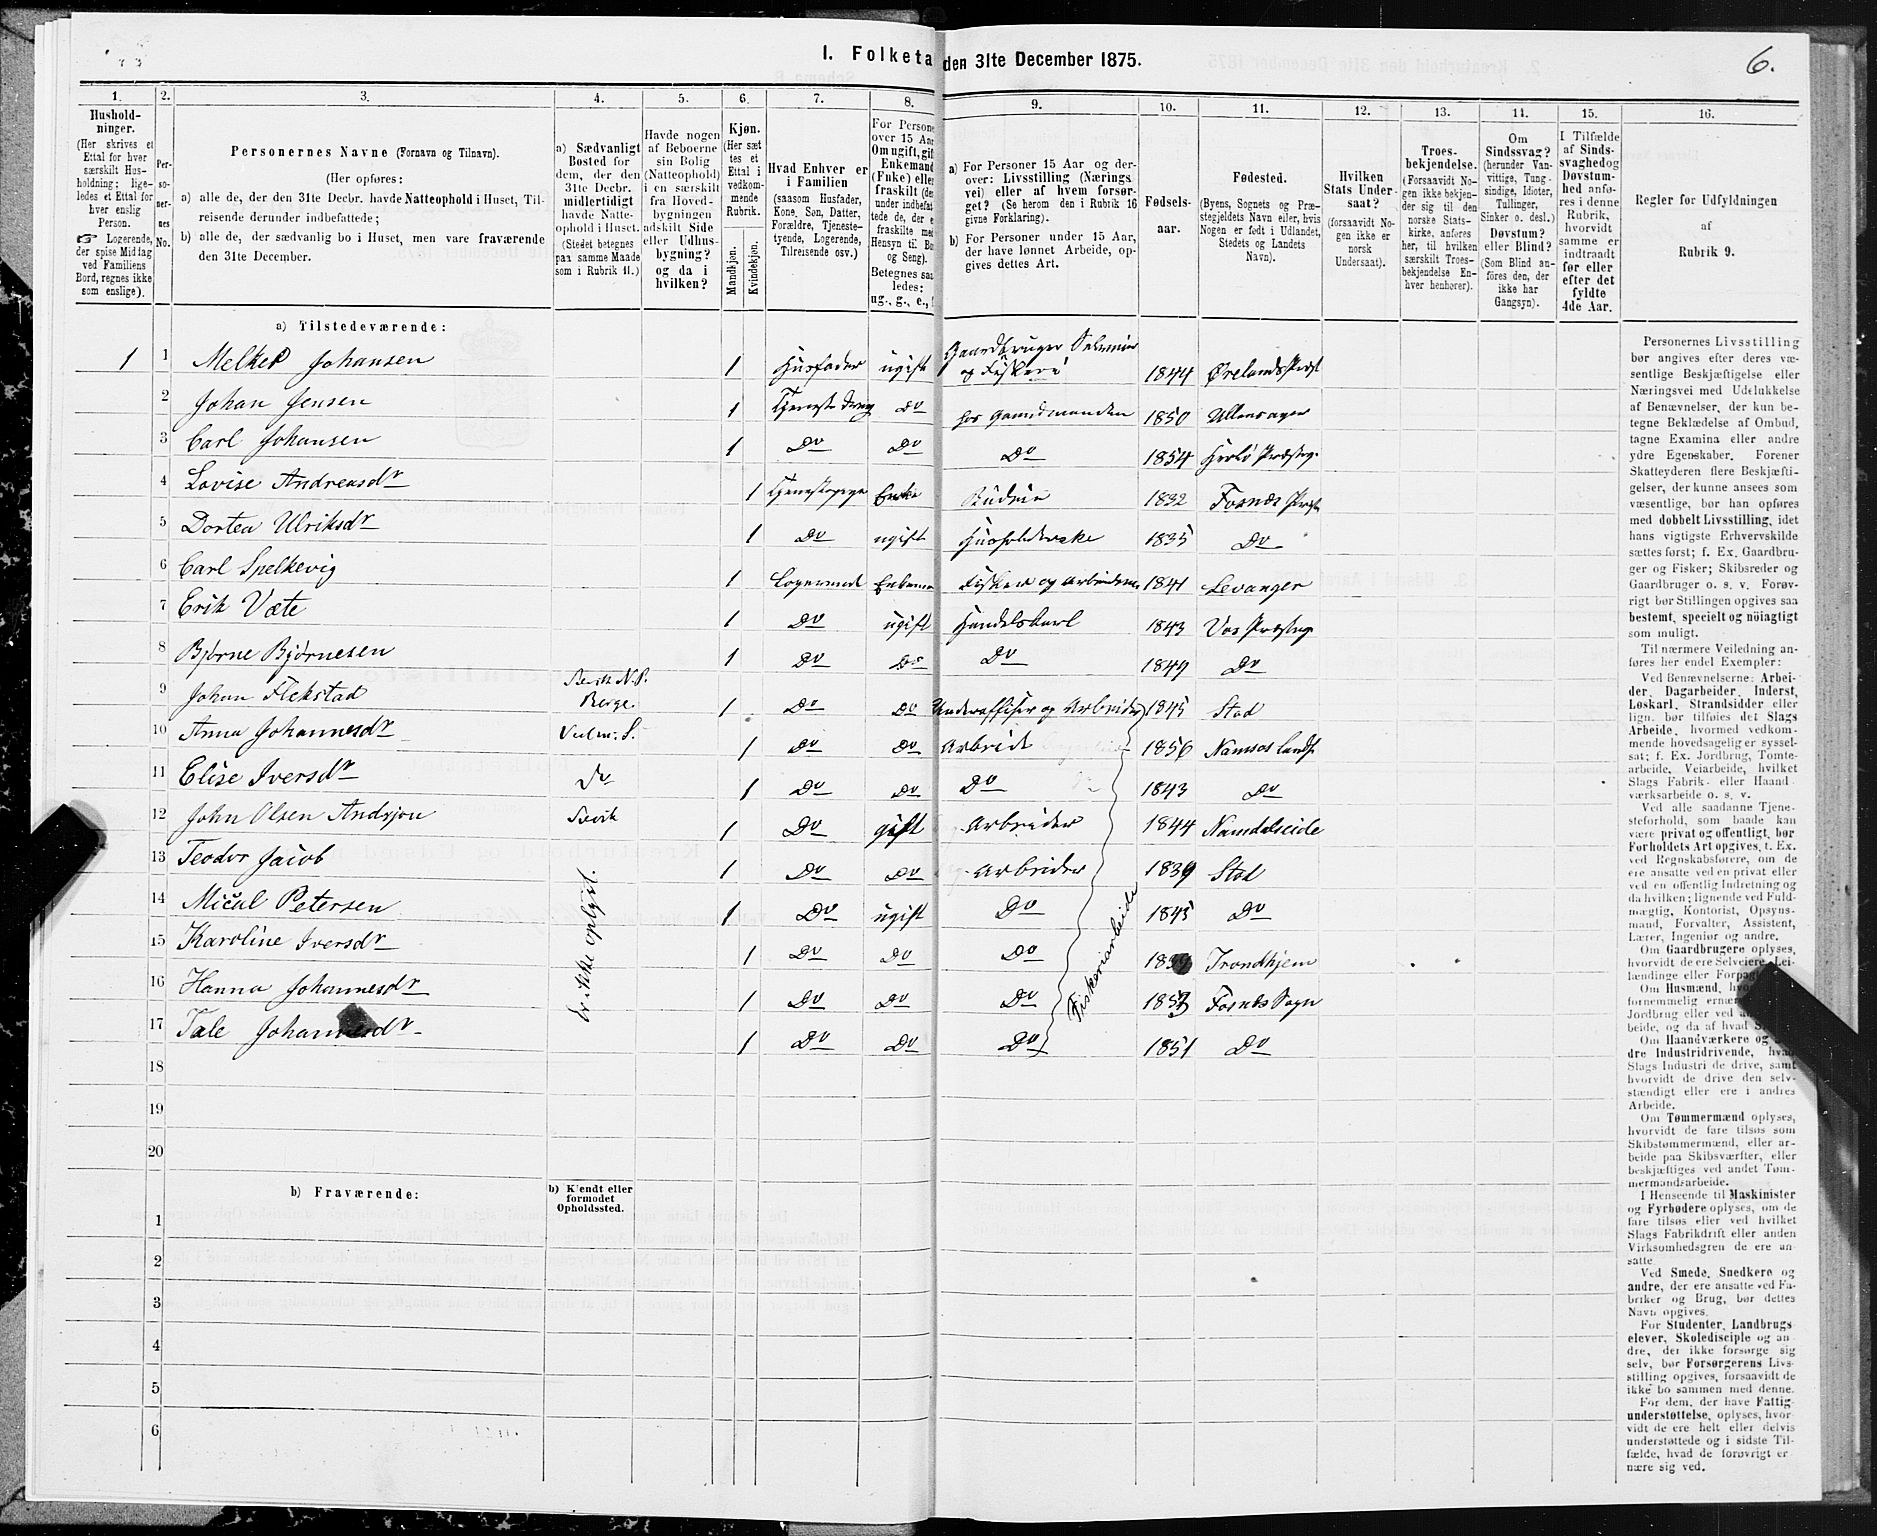 I. Folketa den 31te December 1875.
6.
1. 2. 3. 4. 5. 6. 7. 8. 9. 10. 11. 12. 13. 14. 15. 16.
Hushold-
ninger.
(Her skrives et
Ettal for hver
særskilt Hus-
holdning; lige-
ledes et Ettal for
hver enslig
Person.
☞ Logerende,
der spise Middag
ved Familiens
Bord, regnes ikke
som enslige).
Per-
so-
ner-
nes
No.
Personernes Navne (Fornavn og Tilnavn).
(Her opføres:
a) alle de, der den 31te Decbr. havde Natteophold i Huset, Til-
reisende derunder indbefattede;
b) alle de, der sædvanlig bo i Huset, men vare fraværende
den 31te December.
a) Sædvanligt
Bosted for
dem, der den
31te Decbr.
midlertidigt
havde Natte-
ophold i Huset.
(Stedet betegnes
paa samme Maade
som i Rubrik 11.)
Havde nogen
af Beboerne
sin Bolig
(Natteophold)
i en særskilt
fra Hoved-
bygningen
adskilt Side
eller Udhus-
bygning?
og da i
hvilken?
Kjøn.
(Her sæt
tes et
Ettal i
vedkom-
mende
Rubrik.
Mandkjøn.
Kvindekjøn.
Hvad Enhver er
i Familien
(saasom Husfader,
Kone, Søn, Datter,
Forældre, Tjeneste-
tyende, Logerende,
Tilreisende osv.)
For Persone
over 15 Aar
Om ugift, gif
Enkemand
(Enke) elle
fraskilt (de
under indbefat
tede de, der e
fraskilte me
Hensyn til Bo
og Seng).
Betegnes saa
ledes:
ug., g., e.,
a) For Personer 15 Aar og der-
over: Livsstilling (Nærings
vei) eller af hvem forsør-
get? (Se herom den i Rubrik 16
givne Forklaring).
b) For Personer under 15 Aar,
der have lønnet Arbeide, op-
gives dettes Art.
Fødsels-
aar.
Fødested.
(Byens, Sognets og Præ-
stegjeldets Navn eller, hvis
Nogen er født i Udlandet,
Stedets og Landets
Navn).
Hvilken
Stats Under-
saat?
(forsaavidt No-
gen ikke er
norsk
Undersaat).
Troes-
bekjendelse.
(Forsaavidt No-
gen ikke bekjen-
der sig til den
norske Stats-
kirke, anføres
her, til hvilken
særskilt Troes-
bekjendelse En-
hver henhører).
Om
Sindssvag?
(herunder Van-
vittige, Tung-
sindige, Idioter,
Tullinger,
Sinker o. desl.)
Døvstum?
eller Blind?
(Som Blind an-
føres den, der
ikke har
Gangsyn).
I Tilfælde
af Sinds-
svaghed og
Døvstum-
hed anfø-
res i denne
Rubrik,
hvorvidt
samme er
indtraadt
før eller
efter det
fyldte
4de Aar.
Regler for Udfyldningen
af
Rubrik 9.
a) Tilstedeværende:
1 1 Melker Johansen 1 Husfader ugift Gaardbruger Selveier og Fiskeri 1844 Ørelands Præst
2 Johan Jensen 1 Tjeneste Dreng Do hos Gaardmanden 1850 Ullensager
3 Carl Johansen 1 Do Do Do 1854 Præsteg.
4 Lovise Andreasdr 1 Tjenestepige Enke Budeie 1832 Fosnæs Præst
5 Dortea Ulriksdr 1 Do ugift Husholderske 1835 Do
6 Carl Spelkevig 1 Logerende Enkem Fisker og Arbeider 1841 Levanger
7 Erik Væte 1 Do ugift Handelskarl 1843 Vos Præsteg
8 Bjørne Bjørnesen 1 Do Do Do 1849 Do
9 Johan Flekstad 1 Do Do Underofficer og Arbeider 1845 Stod
10 Anna Johannesdr 1 Do Do Arbeide 1856 Namsos Lands.
11 Elise Iversdr Do 1 Do Do Do 1843 Do
12 John Olsen Andsjøn 1 Do gift Arbeider 1844 Namdalseide
13 Teodor Jacob 1 Do Do Arbeider 1839 Stod
14 Mical Petersen 1 Do ugift Do 1845 Do
15 Karoline Iversdr 1 Do Do Do Trondhjem
16 Hanna Johannesdr 1 Do Do Do Fosnes Sogn
17 Tale Johannesdr 1 Do Do Do 1851 Do
Er ikke oplyst.
Fiskeriarbeide
18
19
20
b) Fraværende:
b) Kjendt eller
formodet
Opholdssted.
1
2
3
4
5
6
Personernes Livsstilling
bør angives efter deres væ-
sentlige Beskjæftigelse eller
Næringsvei med Udelukkelse
af Benævnelser, der kun be-
tegne Beklædelse af Ombud,
tagne Examina eller andre
ydre Egenskaber. Forener
Skatteyderen flere Beskjæfti-
gelser, der kunne ansees som
væsentlige, bør han opføres
med dobbelt Livsstilling, idet
hans vigtigste Erhvervskilde
sættes først; f. Ex. Gaardbru-
ger og Fisker; Skibsreder og
Gaardbruger o. s. v. Forøv-
rigt bør Stillingen opgives saa
bestemt, specielt og nöiagtigt
som muligt.
Til nærmere Veiledning an-
føres her endel Exempler:
Ved Benævnelserne: Arbei-
der, Dagarbeider, Inderst,
Løskarl, Strandsidder eller
lign. bør tilføies det Slags
Arbeide, hvormed vedkom-
mende hovedsagelig er syssel-
sat; f. Ex. Jordbrug, Tomte-
arbeide, Veiarbeide, hvilket
Slags Fabrik- eller Haand
værksarbeide o. s. v.
Ved alle saadanne Tjene-
steforhold, som baade kan
være privat og offentligt, bør
Forholdets Art opgives, t. Ex.
ved Regnskabsførere, om de
ere ansatte ved en privat eller
ved en offentlig Indretning og
da hvilken; lignende ved Fuld-
mægtig, Kontorist, Opsyns-
mand, Forvalter, Assistent,
Lærer, Ingeniør og andre.
Om Gaardbrugere oplyses,
hvorvidt de ere Selveiere, Lei-
lændinge eller
Om Husmænd,
fornemmelig
Jordbrug eller ved
beide, og da af hvad
Om Haandværkere og
dre Industridrivende, hvad
Slags Industri de drive, samt
hvorvidt de drive den selv-
stændigt eller ere i andres
Arbeide.
Om Tømmermænd oplyses,
hvorvidt de fare tilsøs som
Skibstømmermænd, eller ar-
beide paa Skibsværfter, eller
beskjæftiges ved andet Tøm-
mermandsarbeide.
I Henseende til Maskinister
og Fyrbødere oplyses, om de
fare tilsøs eller ved hvilket
Slags Fabrikdrift eller anden
Virksomhedsgren de ere an-
satte
Ved Smede, Snedkere og
andre, der ere ansatte ved Fa-
briker og Brug, bør dettes
Navn opgives.
For Studenter, Landbrugs
elever, Skoledisciple og an-
dre, der ikke forsørge sig
selv, bør Forsørgerens Livs-
stilling opgives, forsaavidt de
ikke bo sammen med denne.
For dem, der have Fattig-
understøttelse, oplyses, hvor-
vidt de ere helt eller delvis
understøttede og i sidste Til-
fælde, hvad de forøvrigt er
nære sig ved.